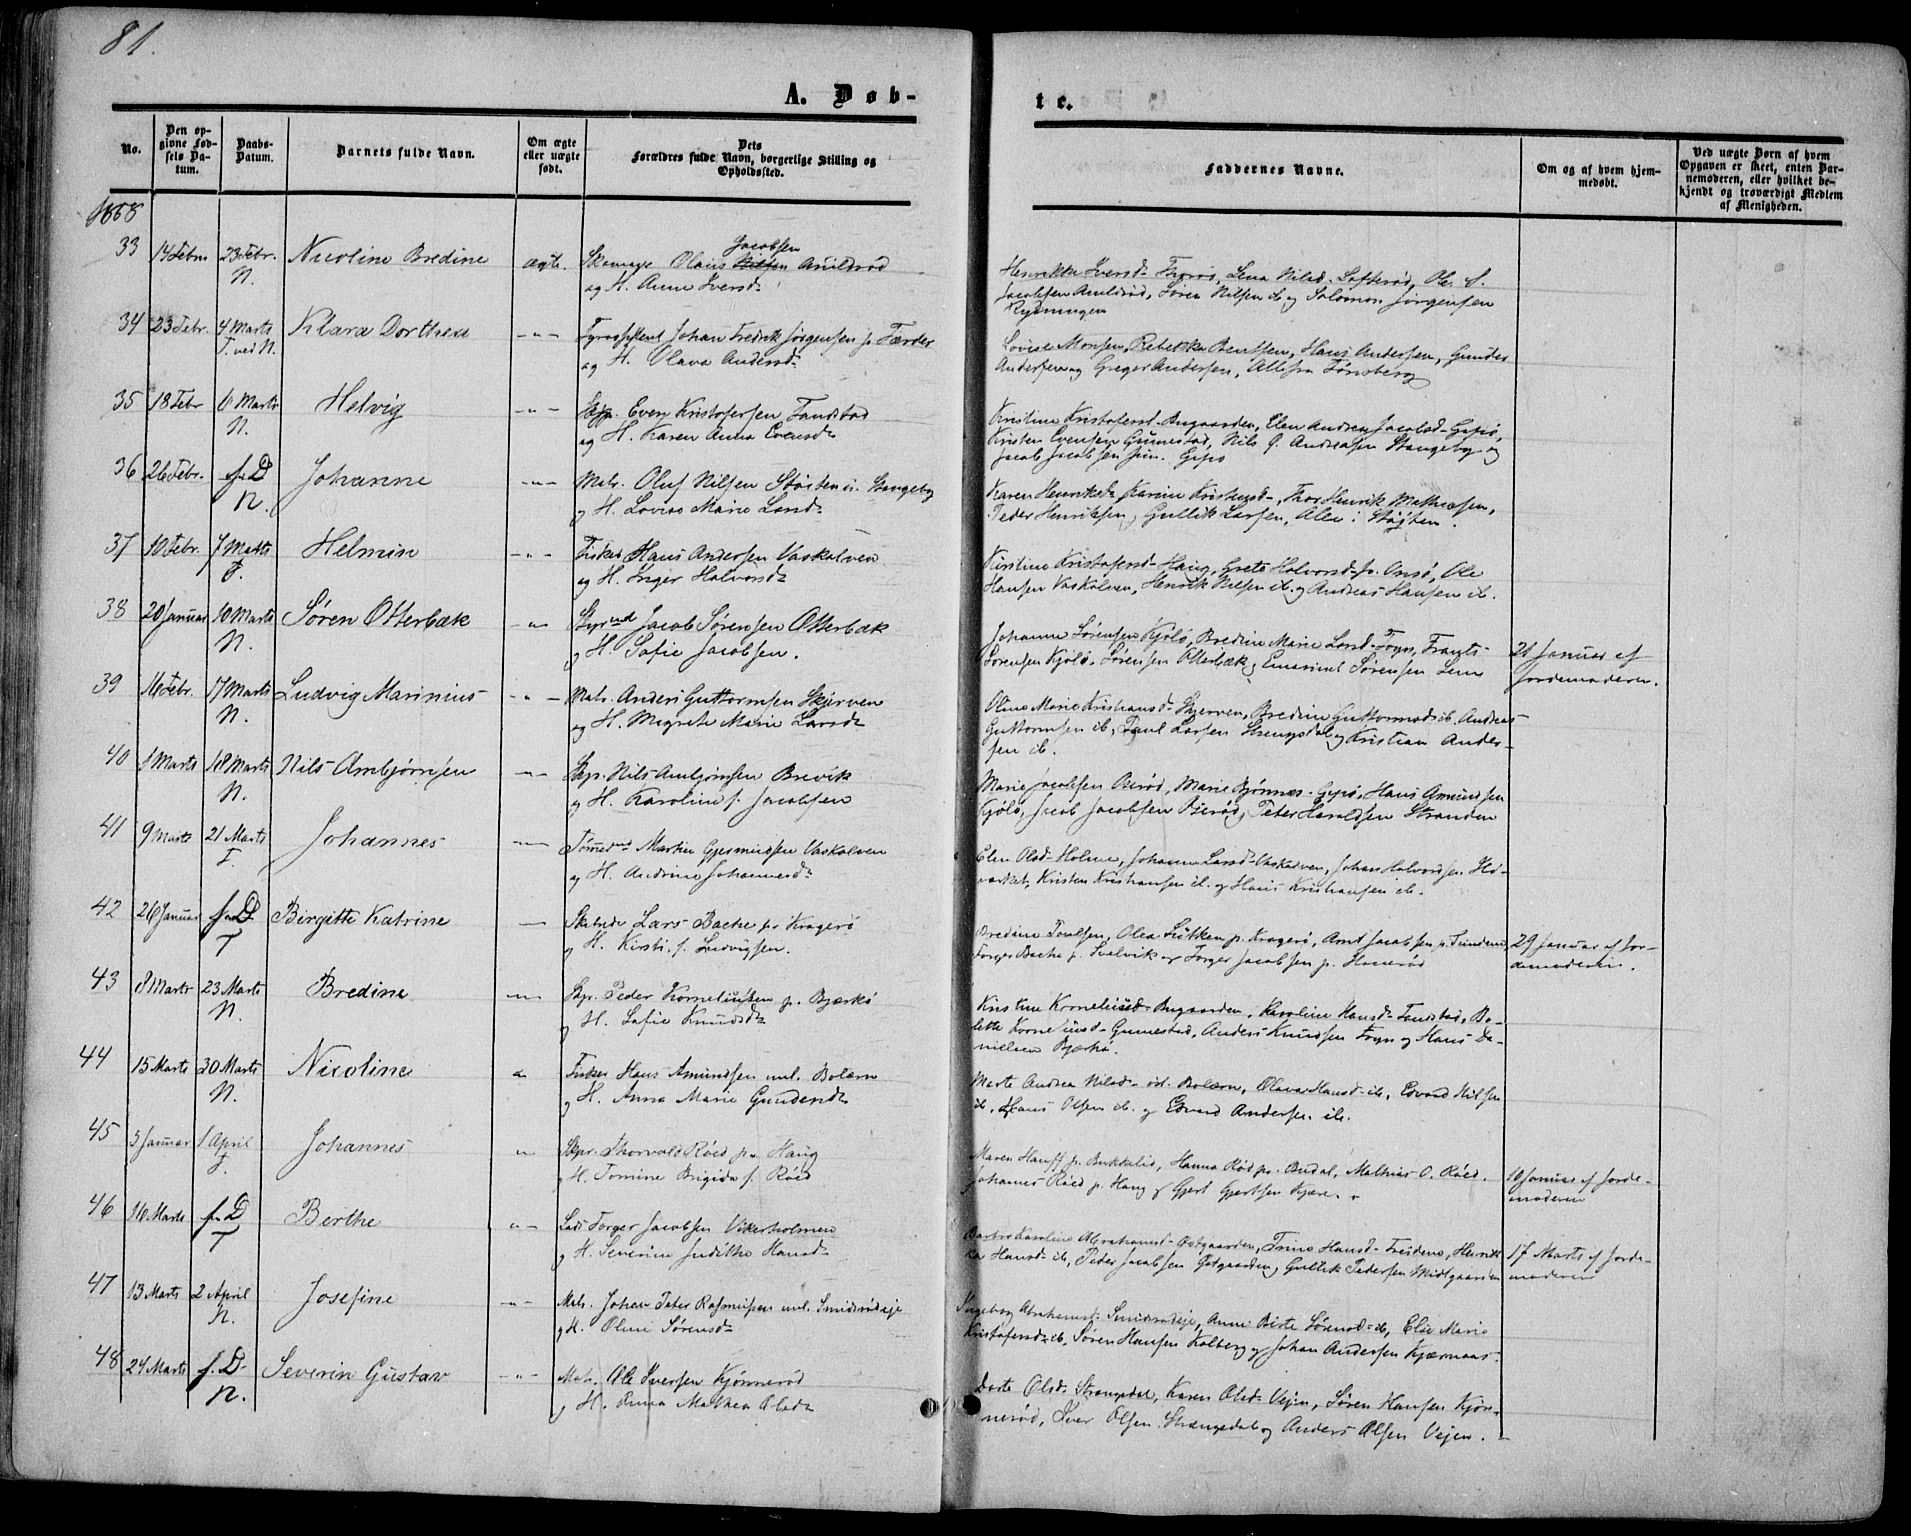 81.
A. Døb-
te.
No.
Den op-
givne Fød-
sels Da-
tum.
Daabs-
Datum.
Barnets fulde Navn.
Om ægte
eller uægte
født.
Dets
Forældres fulde Navn, borgerlige Stilling og
Opholdssted.
Faddernes Navne.
Om og af hvem hjem-
medøbt.
Ved uægte Børn af hvem
Opgaven er skeet, enten Bar-
nemoderen, eller hvilket be-
kjendt og troværdigt Medlem
af Menigheden.
1868
33 14 Febru 23 Febr. N. Nicoline Bredine ægte.
Jacobsen
Olaus Nilsen Anildrød
og H. Anne Iversd.
Henrikka Iversd. Thorøs, Lena Nilsd. Lofterød, Ole S.
Jacobsen Anildrød, Søren Nilsen ib. og Salomon Jørgensen
Rydningen
34 23 Febr. 4 Marts T. ved N. Klara Dorthea - " -
Fyrassistent Johan Fredrik Jørgensen p. Færder
og H. Olava Andersd.
Lovise Monsen, Rebekka Berntsen, Hans Andersen, Gunder
Andersen og Greger Andersen, Alle fra Tønsberg
35 18 Febr 6 Marts N. Helvig - " -
Skpr. Even Kristofersen Fandstad
og H. Karen Anna Evensd.
Kristine Kristofersd. Bugaarden, Elen Andrea Jacobsd. Gipø,
Kristen Evensen Gunnestad, Nils G. Andreasen Stangeby og
Jacob Jacobsen jun. Gipø
36 26 Febr. f. D. N. Johanne - " -
Matr. Oluf Nilsen Støiten v. Stangeby
og H. Lovise Marie Larsd.
Karen Henriksd., Karine Kristensd., Thor Henrik Mathiesen,
Peder Henriksen, Gullik Larsen, Alle i Støiten.
37 10 Febr. 7 Marts T. Helmin - " -
Fisker Hans Andersen Vaskalven
og H. Inger Halvorsd.
Kirstine Kristofersd. Haug, Grete Halvorsd. p. Onsø, Ole
Hansen Vaskalven, Henrik Nilsen ib. og Andreas Hansen ib.
38 20 Januar 10 Marts N. Søren Otterbæk - " -
Jacob Sørensen Otterbæk
og H. Sofie Jacobsen.
Johanne Sørensen Kjøle, Bredine Marie Larsd. Føyn, Frants
Sørensen Kjølø, Sørensen Otterbæk, Emanuel Sørensen Lene
21 Januar af
Jordemoderen.
39 16 Febr. 17 Marts N. Ludvig Marinius - " -
Matr. Anders Guttormsen Skjerven
og H. Megrete Marie Larsd.
Oline Marie Kristiansd. Skjerven, Bredine Guttormsd. ib. Andreas
Guttormsen ib, Paul Larsen Strengsdal og Kristian Ander-
sen ib.
40 1 Marts 18 Marts N. Nils Ambjørnsen - " -
Skpr. Nils Ambjørnsen Brevik
og H. Karoline f. Jacobsen
Marie Jacobsen Bjerød, Marie Bjønnes Gipø, Hans Amundsen
Kjølø, Jacob Jacobsen Bjerød, Peter Haraldsen Stranden
41 9 Marts 21 Marts T. Johannes - " -
Martin Gjermundsen Vaskalven
og H. Andrine Johannesd.
Elen Olsd. Holme, Johanne Larsd. Vaskalven, Johan Halvorsen Hø-
værket, Kristen Kristiansen ib. og Hans Kristiansen ib.
42 26 Januar f. D. T Birgitte Katrine
Lars Bache p. Kragerø
og H. Kirsti f. Ludvigsen.
Bredine Poulsen, Olea Lütken p. Kragerø, Arnt Jacobsen p. Tundene
Torger Bache p. Svelvik og Torger Jacobsen p. Hanerød
29 Januar af Jor-
demoderen.
43 8 Marts 23 Marts N. Bredine
Skpr. Peder Korneliussen p. Bjærkø
og H. Sofie Knudsd.
Kristine Korneliusd. Bugaarden, Karoline Hansd. Fandstad, Bo-
lette Korneliusd. Gunnestad, Anders Knudsen Føyn og Hans Da-
nielsen Bjærkø.
44 15 Marts 30 Marts N. Nicoline
Fisker Hans Amundsen ml. Bolærn
og H. Anna Marie Gundersd.
Marte Andrea Nilsd. øst. Bolærn, Olava Hansd. ib, Edvard Nilsen
ib, Hans Olsen ib. og Edvard Andersen ib.
45 5 Januar 1 April T. Johannes
Skpr. Thorvald Røed p. Haug
og H. Tomine Brigida f. Røed
Maren Hauff p. Bukkelid, Hanna Rød p. Budal, Mathias O. Røed,
Johannes Røed p. Haug og Gjert Gjertsen Kjære.
10 Januar af Jorde-
moderen
46 16 Marts f. D T Berthe
Lods Torger Jacobsen Vikerholmen
og H. Severine Judithe Hansd.
Barbro Karoline Abrahamsd. Østgaarden, Trine Hansd. Fredene, Henrik-
ka Hansd. ib, Peder Jacobsen Østgaarden, Gullik Pedersen Midtgaarden
17 Marts af Jorde-
moderen
47 13 Marts 2 April N. Josefine - " -
Matr. Johan Peter Rasmussen ml. Smidsrødeje
og H. Oline Sørensd.
Ingeborg Abrahamsd. Smidsrødeje, Anne Birte Sørensd. ib, Elie Marie
Kristofersd. ib, Søren Hansen Kolberg og Johan Andersen Kjærnaas.
48 24 Marts f. D. N. Severin Gustav - " -
Matr. Ole Iversen Kjønnerød
og H. Anna Mathea Olsd.
Dorte Olsd. Strangedal, Karen Olsd. Vejen, Søren Hansen Kjøn-
nerød, Iver Olsen Strængsdal og Anders Olsen Vejen.